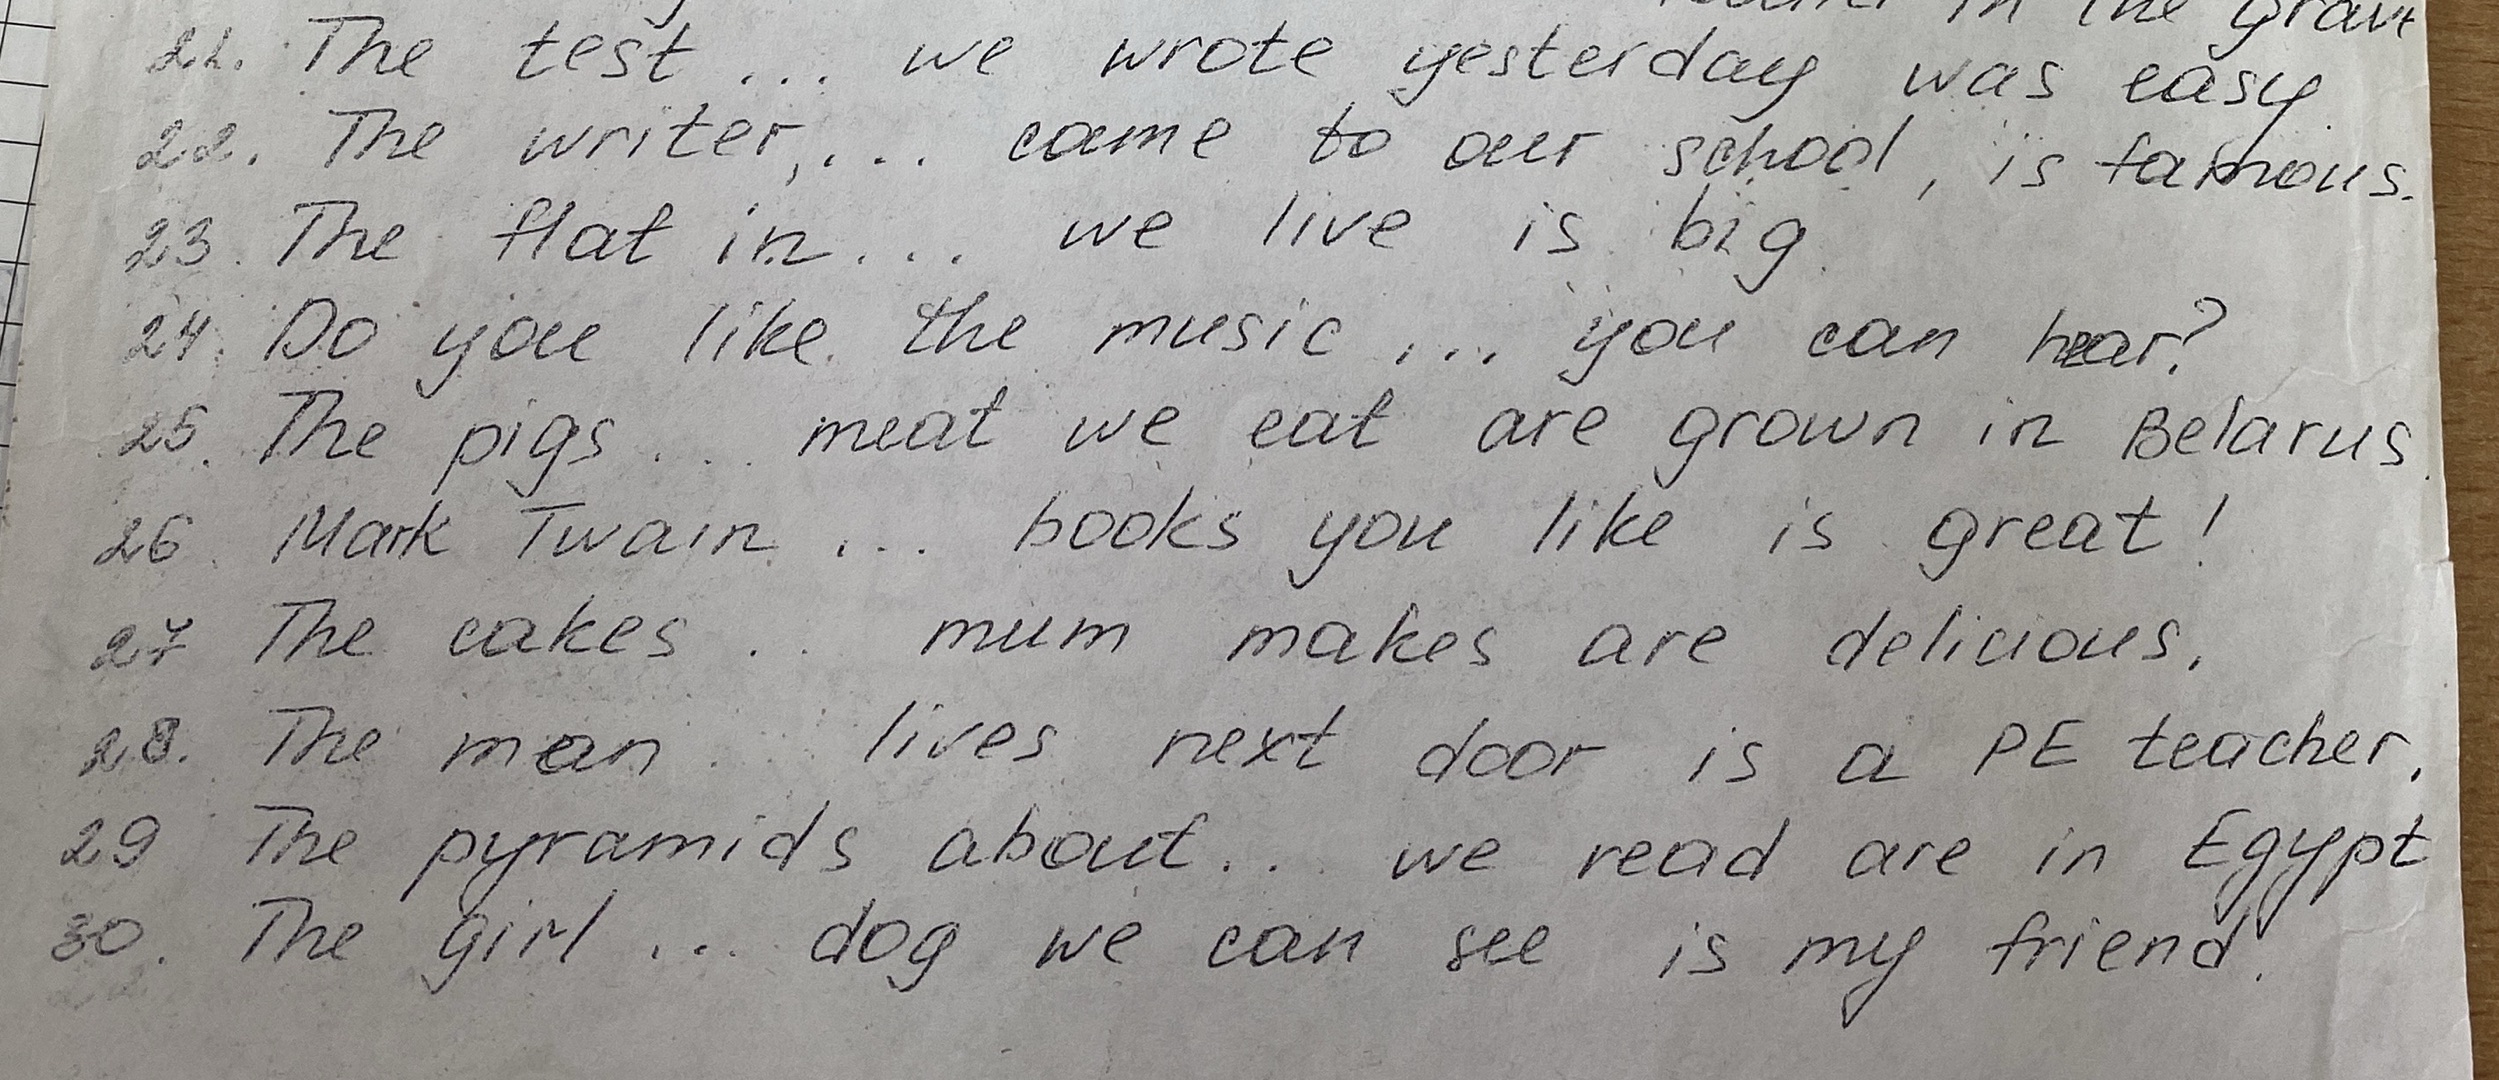 in the grave
21. The test ... we wrote yesterday was easy.
22. The writer, ... came to our school, is famous.
23. The flat in ... we live is big.
24. Do you like the music ... you can hear?
25. The pigs ... meat we eat are grown in Belarus.
26. Mark Twain ... books you like is great!
27 The cakes ... mum makes are delicious.
28. The man ... lives next door is a PE teacher.
29 The pyramids about ... we read are in Egypt
30. The girl ... dog we can see is my friend.